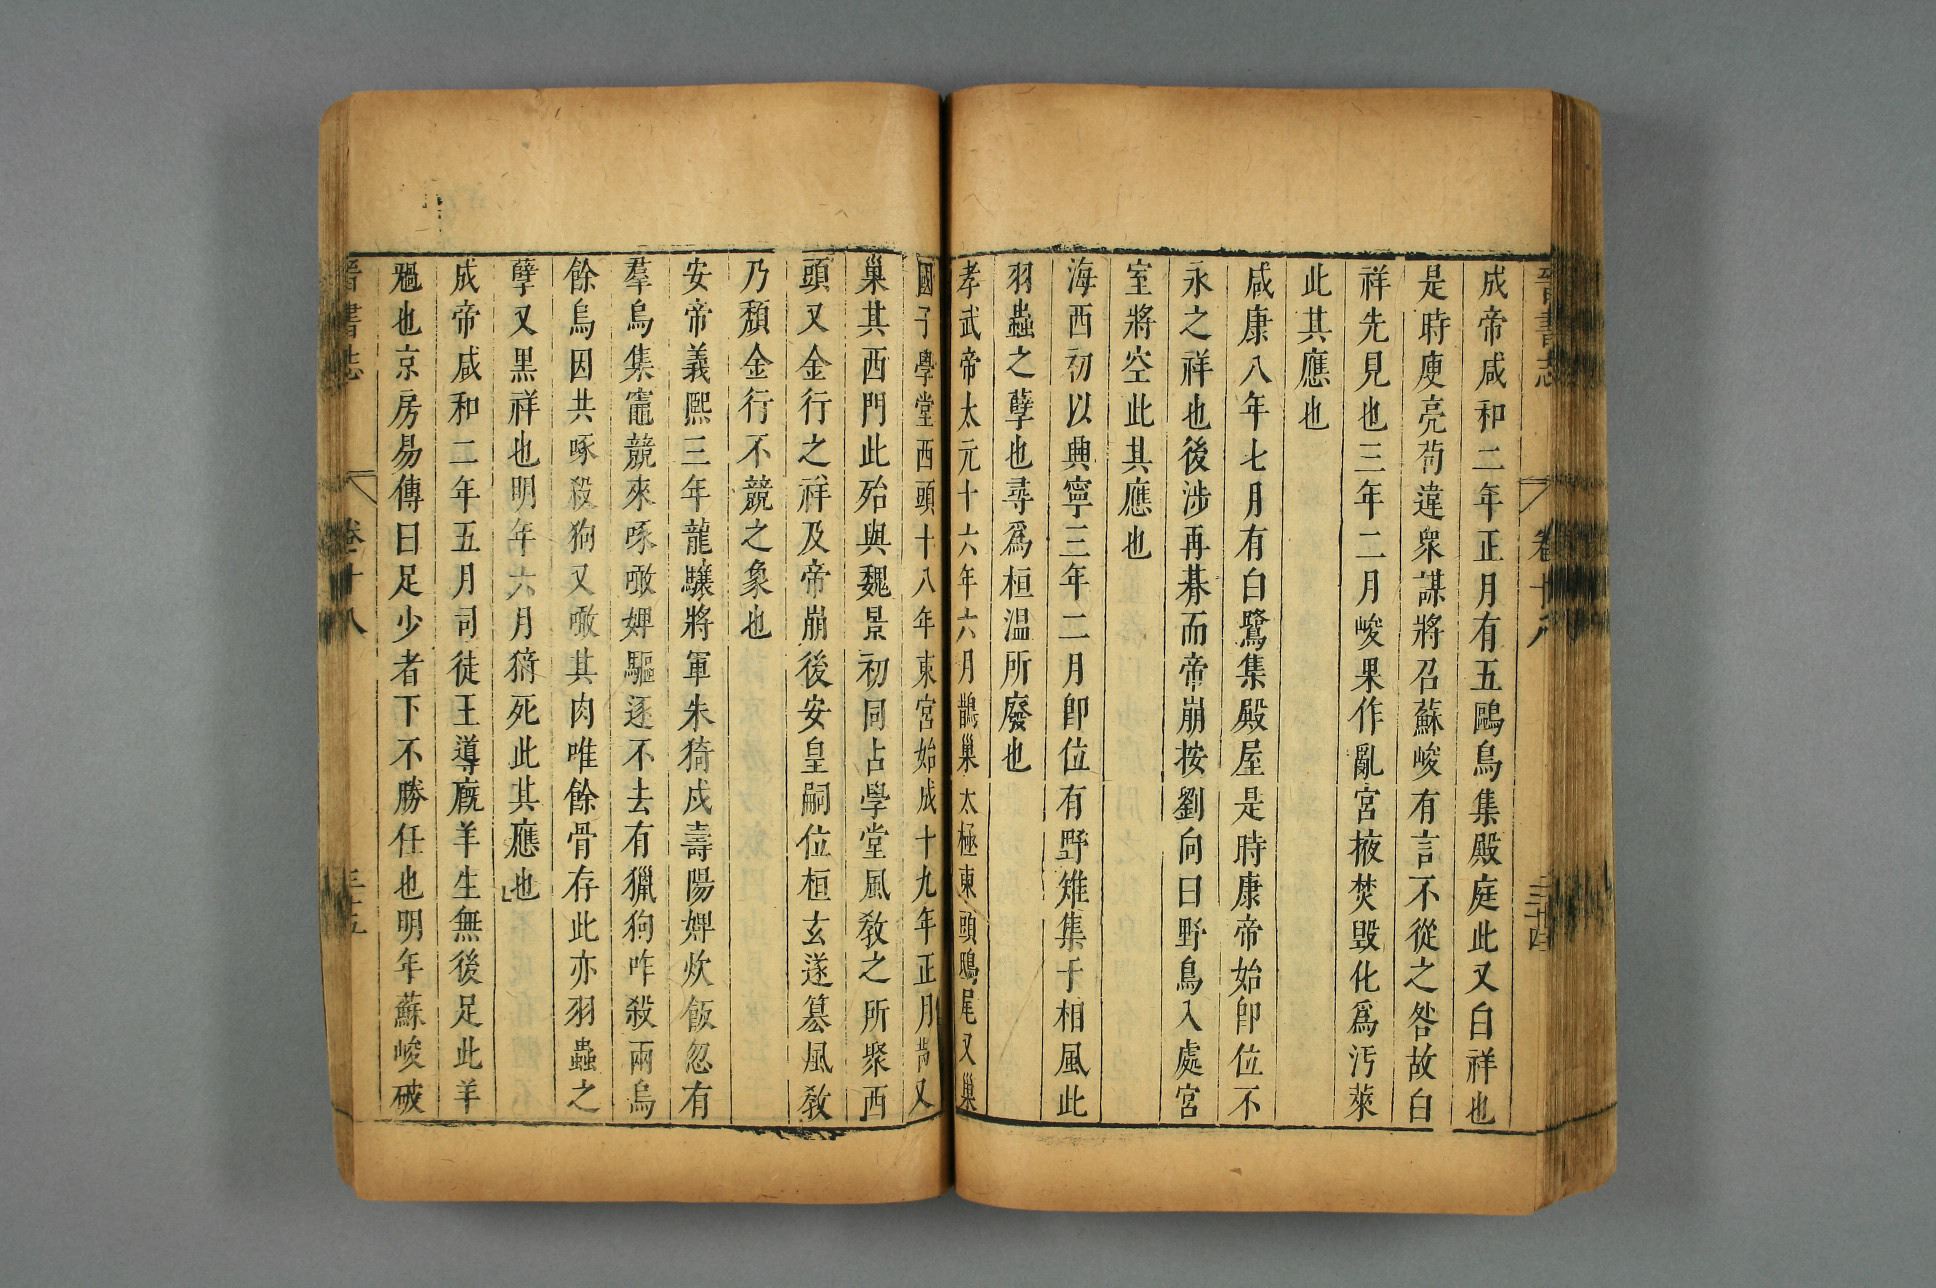 晉書志 卷廿八 三十四
成帝咸和二年正月有五鷗鳥集殿庭此又白祥也
是時庾亮苟違衆謀將召蘇峻有言不從之咎故白
祥先見也三年二月峻果作亂宮掖焚毀化爲汚萊
此其應也
咸康八年七月有白鷺集殿屋是時康帝始卽位不
永之祥也後涉再朞而帝崩按劉向曰野鳥入處宮
室將空此其應也
海西初以興寧三年二月卽位有野雉集于相風此
羽蟲之孽也尋爲桓溫所廢也
孝武帝太元十六年六月鵲巢太極東頭鴟尾又巢
國子學堂西頭十八年東宮始成十九年正月鵲又
巢其西門此殆與魏景初同占學堂風敎之所聚西
頭又金行之祥及帝崩後安皇嗣位桓玄遂簒風敎
乃頹金行不競之象也
安帝義熙三年龍驤將軍朱猗戍壽陽婢炊飯忽有
羣烏集竈競來啄噉婢驅逐不去有獵狗咋殺兩烏
餘烏因共啄殺狗又噉其肉唯餘骨存此亦羽蟲之
孽又黑祥也明年六月猗死此其應也
成帝咸和二年五月司徒王導廐羊生無後足此羊
𥚽也京房易傳曰足少者下不勝任也明年蘇峻破
晉書志 卷廿八 三十五